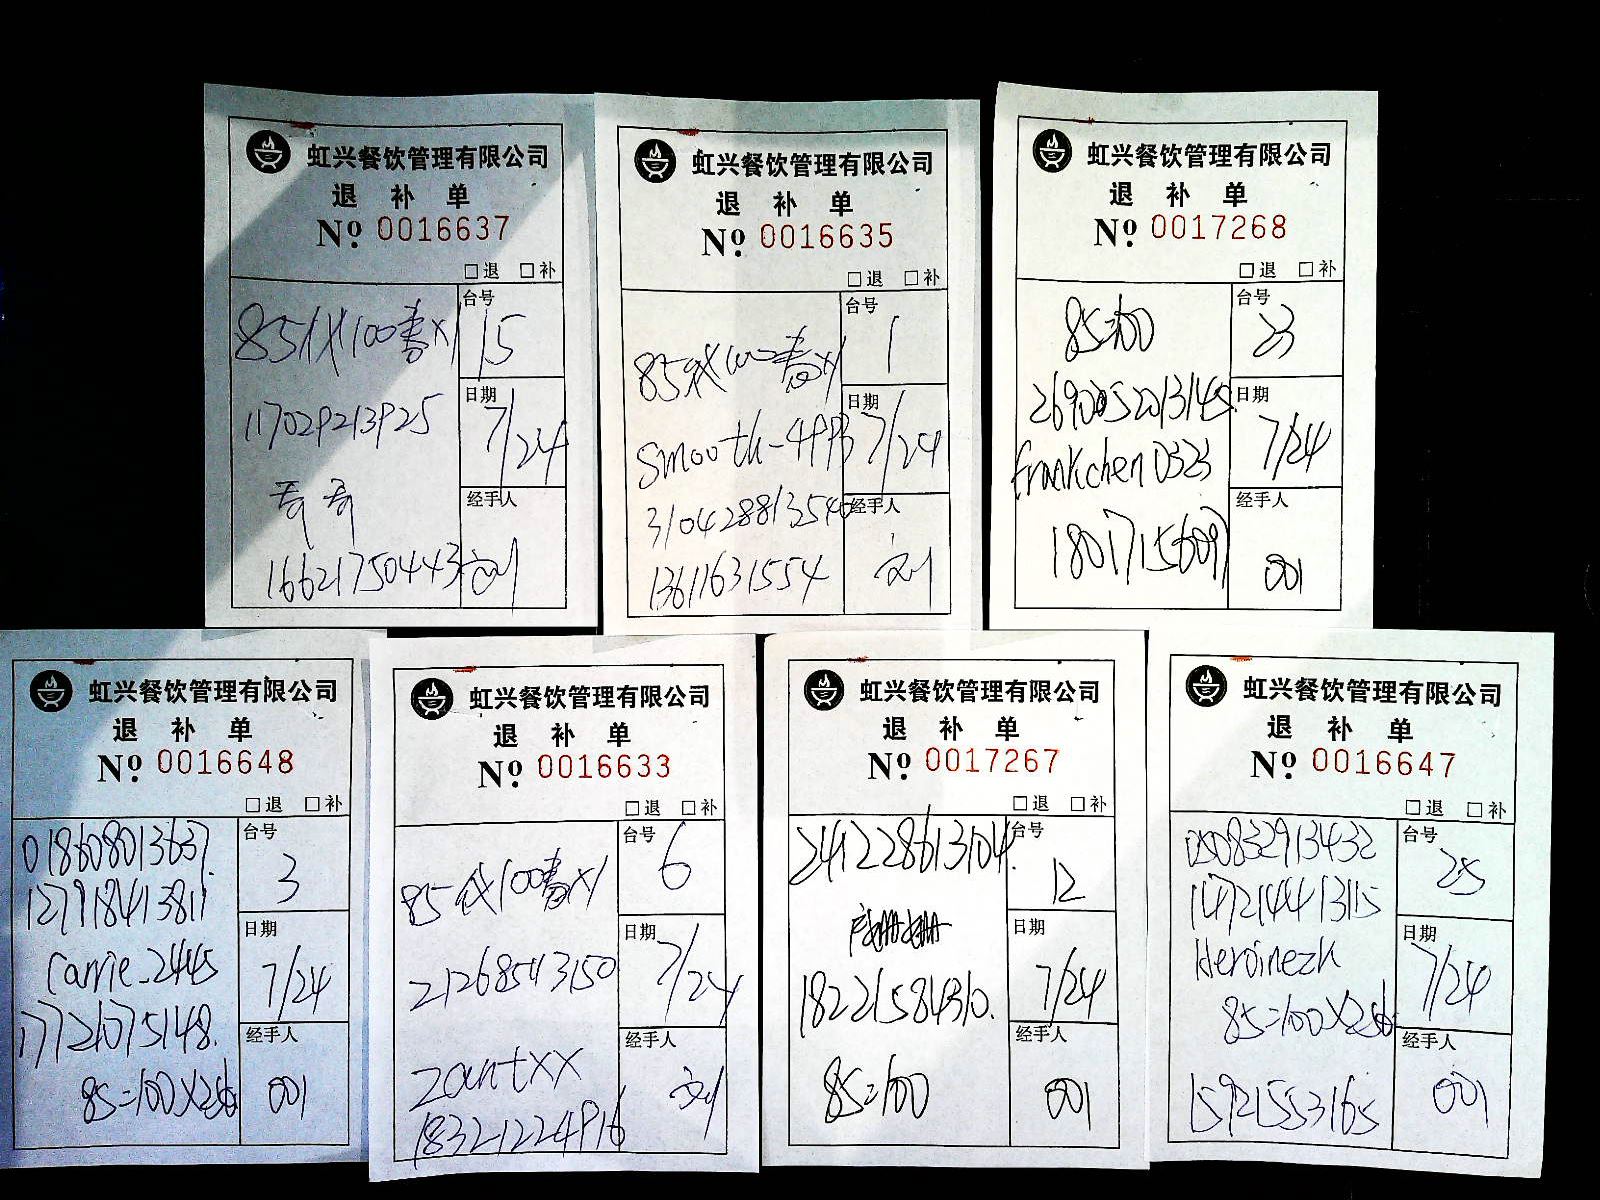 虹兴餐饮管理有限公司
退 补 单
№ 0016637
□退 □补
台号
15
日期
7/24
经手人
85代100春x1
117029213925
16621750443
虹兴餐饮管理有限公司
退 补 单
№ 0016635
□退 □补
台号
1
日期
7/24
经手人
85代100春x1
Smooth-4
310428813540
13611631554
虹兴餐饮管理有限公司
退 补 单
№ 0017268
□退 □补
台号
23
日期
7/24
经手人
001
85=100
frankchen0323
18017156097
虹兴餐饮管理有限公司
退 补 单
№ 0016648
□退 □补
台号
3
日期
7/24
经手人
001
018608013637.
127918413811
Carrie_2445
17721075148.
85=100X2
虹兴餐饮管理有限公司
退 补 单
№ 0016633
□退 □补
台号
6
日期
7/24
经手人
85代100春x1
212685413150
zantxx
18321224916
虹兴餐饮管理有限公司
退 补 单
№ 0017267
□退 □补
台号
12
日期
7/24
经手人
001
241228613104.
18221584310.
85=100
虹兴餐饮管理有限公司
退 补 单
№ 0016647
□退 □补
台号
25
日期
7/24
经手人
001
050832913432
147214413115
Heroinezh
85=100X2
15921553165